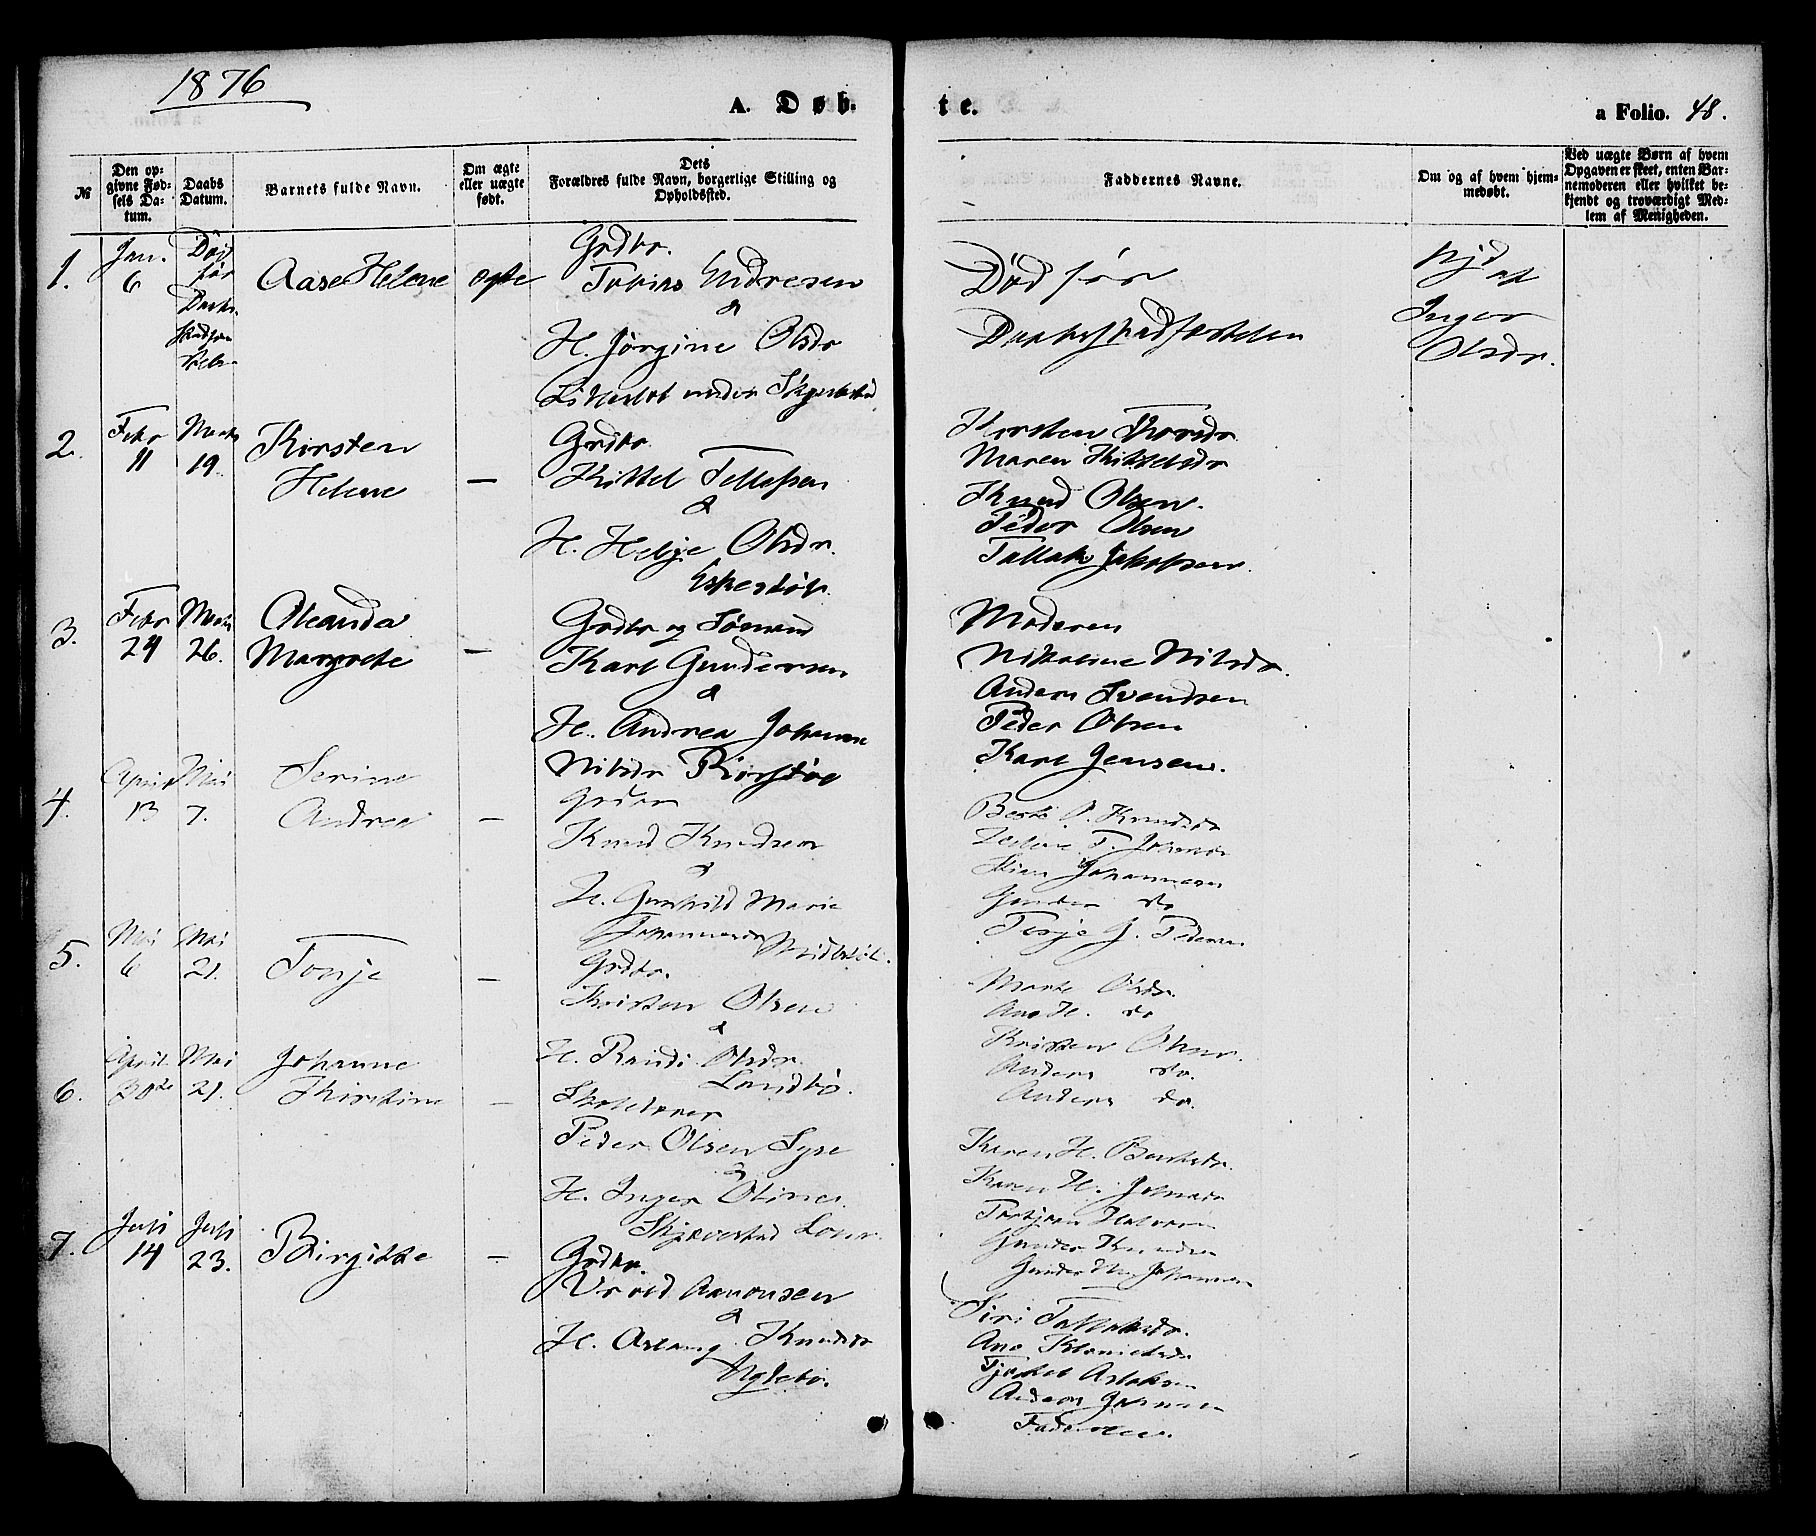 1876
A. Døb-
te.
a Folio. 48.
№
Den op-
givne Fød-
sels Da-
tum.
Daabs
Datum.
Barnets fulde Navn.
Om ægte
eller uægte
født.
Dets
Forældres fulde Navn, borgerlige Stilling og
Opholdssted.
Faddernes Navne.
Om og af hvem hjem-
medøbt.
Ved uægte Børn af hvem
Opgaven er skeet, enten Bar-
nemoderen eller hvilket be-
kjendt og troværdigt Med-
lem af Menigheden.
1.
Jan.
6
Død
før
Aase Helene
ægte
Grdbr.
Tobias Endresen
&
H. Jørgine Olsdr
under
Død før
Hjd af
Inger
Olsdr.
2.
Febr
11
Marts
19.
Kirsten
Helene
—
Grdbr.
Kittel Tellefsen
&
H. Helje Olsdr.
Eskestøl
Maren Kittelsdr
Knud Olsen.
Peder Olsen
Tallak Jakobsen.
3.
Febr
24
Marts
26.
Oleanda
Margrete
—
Grdbr og Sømand
Karl Gundersen
&
H. Andrea Johanne
Nilsdr
Moderen
Nikoline Nilsdr.
Anders Svendsen
Peder Olsen
Karl Jensen.
4.
April
13
Mai
7.
Serine
Andrea
—
Grdbr
Knud Knudsen
&
H. Gunhild Marie
Johannesdr
Knudsdr
Johannesen
Gunder do
Terje G. Pedersen
5.
Mai
6
Mai
21.
Tonje
—
Grdbr.
Kristen Olsen
&
H. Randi Olsdr.
Landbø.
Marte Olsdr.
Ane H. do
Kristen Olsen.
Anders do.
Anders do.
6.
April
30
Mai
21.
Johanne
Kirstine
—
Skolelærer
Peder Olsen Syse
&
H. Inger Oline
Karen H.
Karen H.
Torbjørn Halvorsen
Gunder Knudsen
Gunder Johannesen
7.
Juli
14
Juli
23.
Birgitte
—
Grdbr.
Aanonsen
&
H. Aslaug Knudsdr
Uglebø.
Siri Tallaksdr.
Ane
Aslaksen
Faderen.